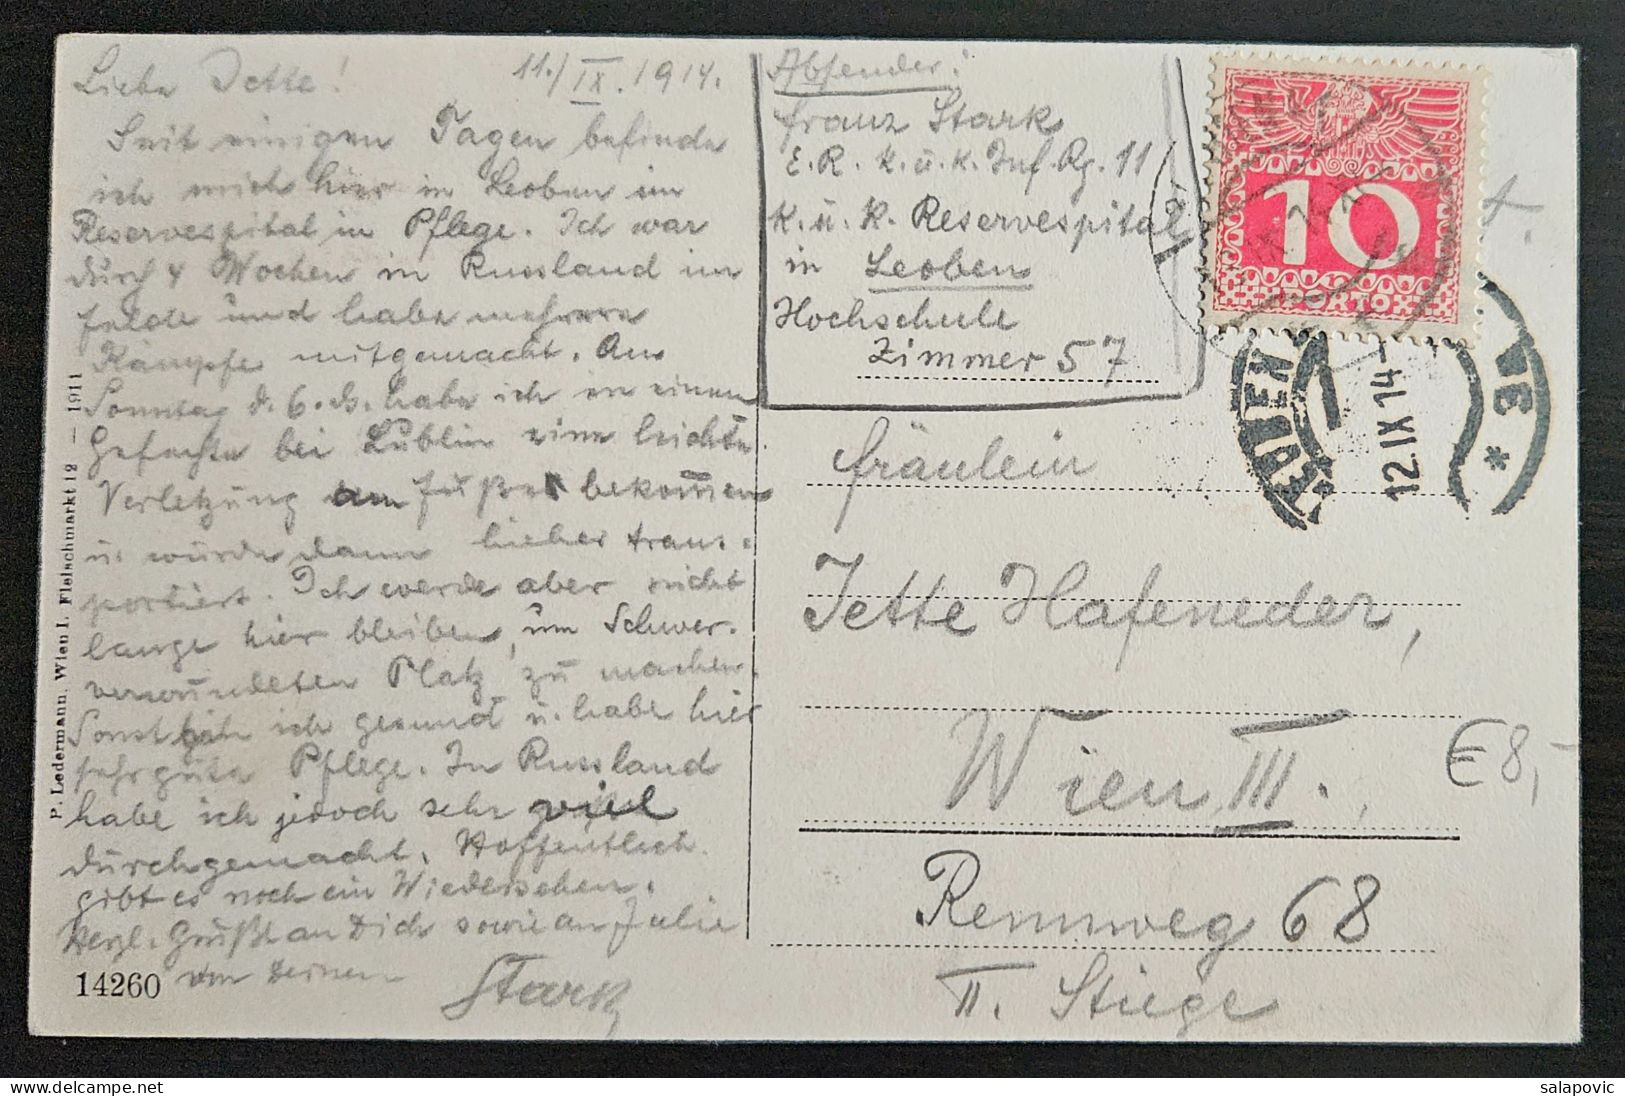 Liebe Jette! 11./IX. 1914.
Seit einigen Tagen befinde
ich mich hier in Leoben im
Reservespital in Pflege. Ich war
durch 4 Wochen in Russland im
Felde und habe mehrere
Kämpfe mitgemacht. Am
Sonntag d. 6. ds. habe ich in einem
Gefechte bei Lublin eine leichte
Verletzung am Fuße bekommen
u. wurde dann hieher trans-
portiert. Ich werde aber nicht
lange hier bleiben, um Schwer-
verwundeten Platz zu machen.
Sonst bin ich gesund u. habe hier
sehr gute Pflege. In Russland
habe ich jedoch sehr viel
durchgemacht. Hoffentlich
gibt es noch ein Wiedersehen.
Herzl. Grüße an Dich sowie an Julie
von Deinem
Stark
14260
P. Ledermann, Wien I. Fleischmarkt 12 — 1911
Absender:
Franz Stark
E.R. k. u. k. Inf. Rg. 11
K. u. K. Reservespital
in Leoben
Hochschule
Zimmer 57
10
PORTO
WIEN
12.IX.14
Fräulein
Jette Hafeneder,
Wien III.
Rennweg 68
II. Stiege
€8,-
salapovic